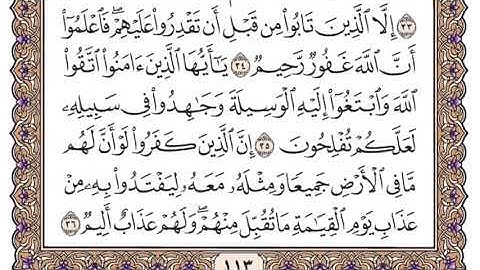 ٣٣ إِلَّا ٱلَّذِينَ تَابُوا۟ مِن قَبۡلِ أَن تَقۡدِرُوا۟ عَلَيۡهِمۡۖ فَٱعۡلَمُوٓا۟
أَنَّ ٱللَّهَ غَفُورٞ رَّحِيمٞ ٣٤ يَـٰٓأَيُّهَا ٱلَّذِينَ ءَامَنُوا۟ ٱتَّقُوا۟
ٱللَّهَ وَٱبۡتَغُوٓا۟ إِلَيۡهِ ٱلۡوَسِيلَةَ وَجَـٰهِدُوا۟ فِي سَبِيلِهِۦ
لَعَلَّكُمۡ تُفۡلِحُونَ ٣٥ إِنَّ ٱلَّذِينَ كَفَرُوا۟ لَوۡ أَنَّ لَهُم
مَّا فِي ٱلۡأَرۡضِ جَمِيعٗا وَمِثۡلَهُۥ مَعَهُۥ لِيَفۡتَدُوا۟ بِهِۦ مِنۡ
عَذَابِ يَوۡمِ ٱلۡقِيَـٰمَةِ مَا تُقُبِّلَ مِنۡهُمۡۖ وَلَهُمۡ عَذَابٌ أَلِيمٞ ٣٦
١١٣